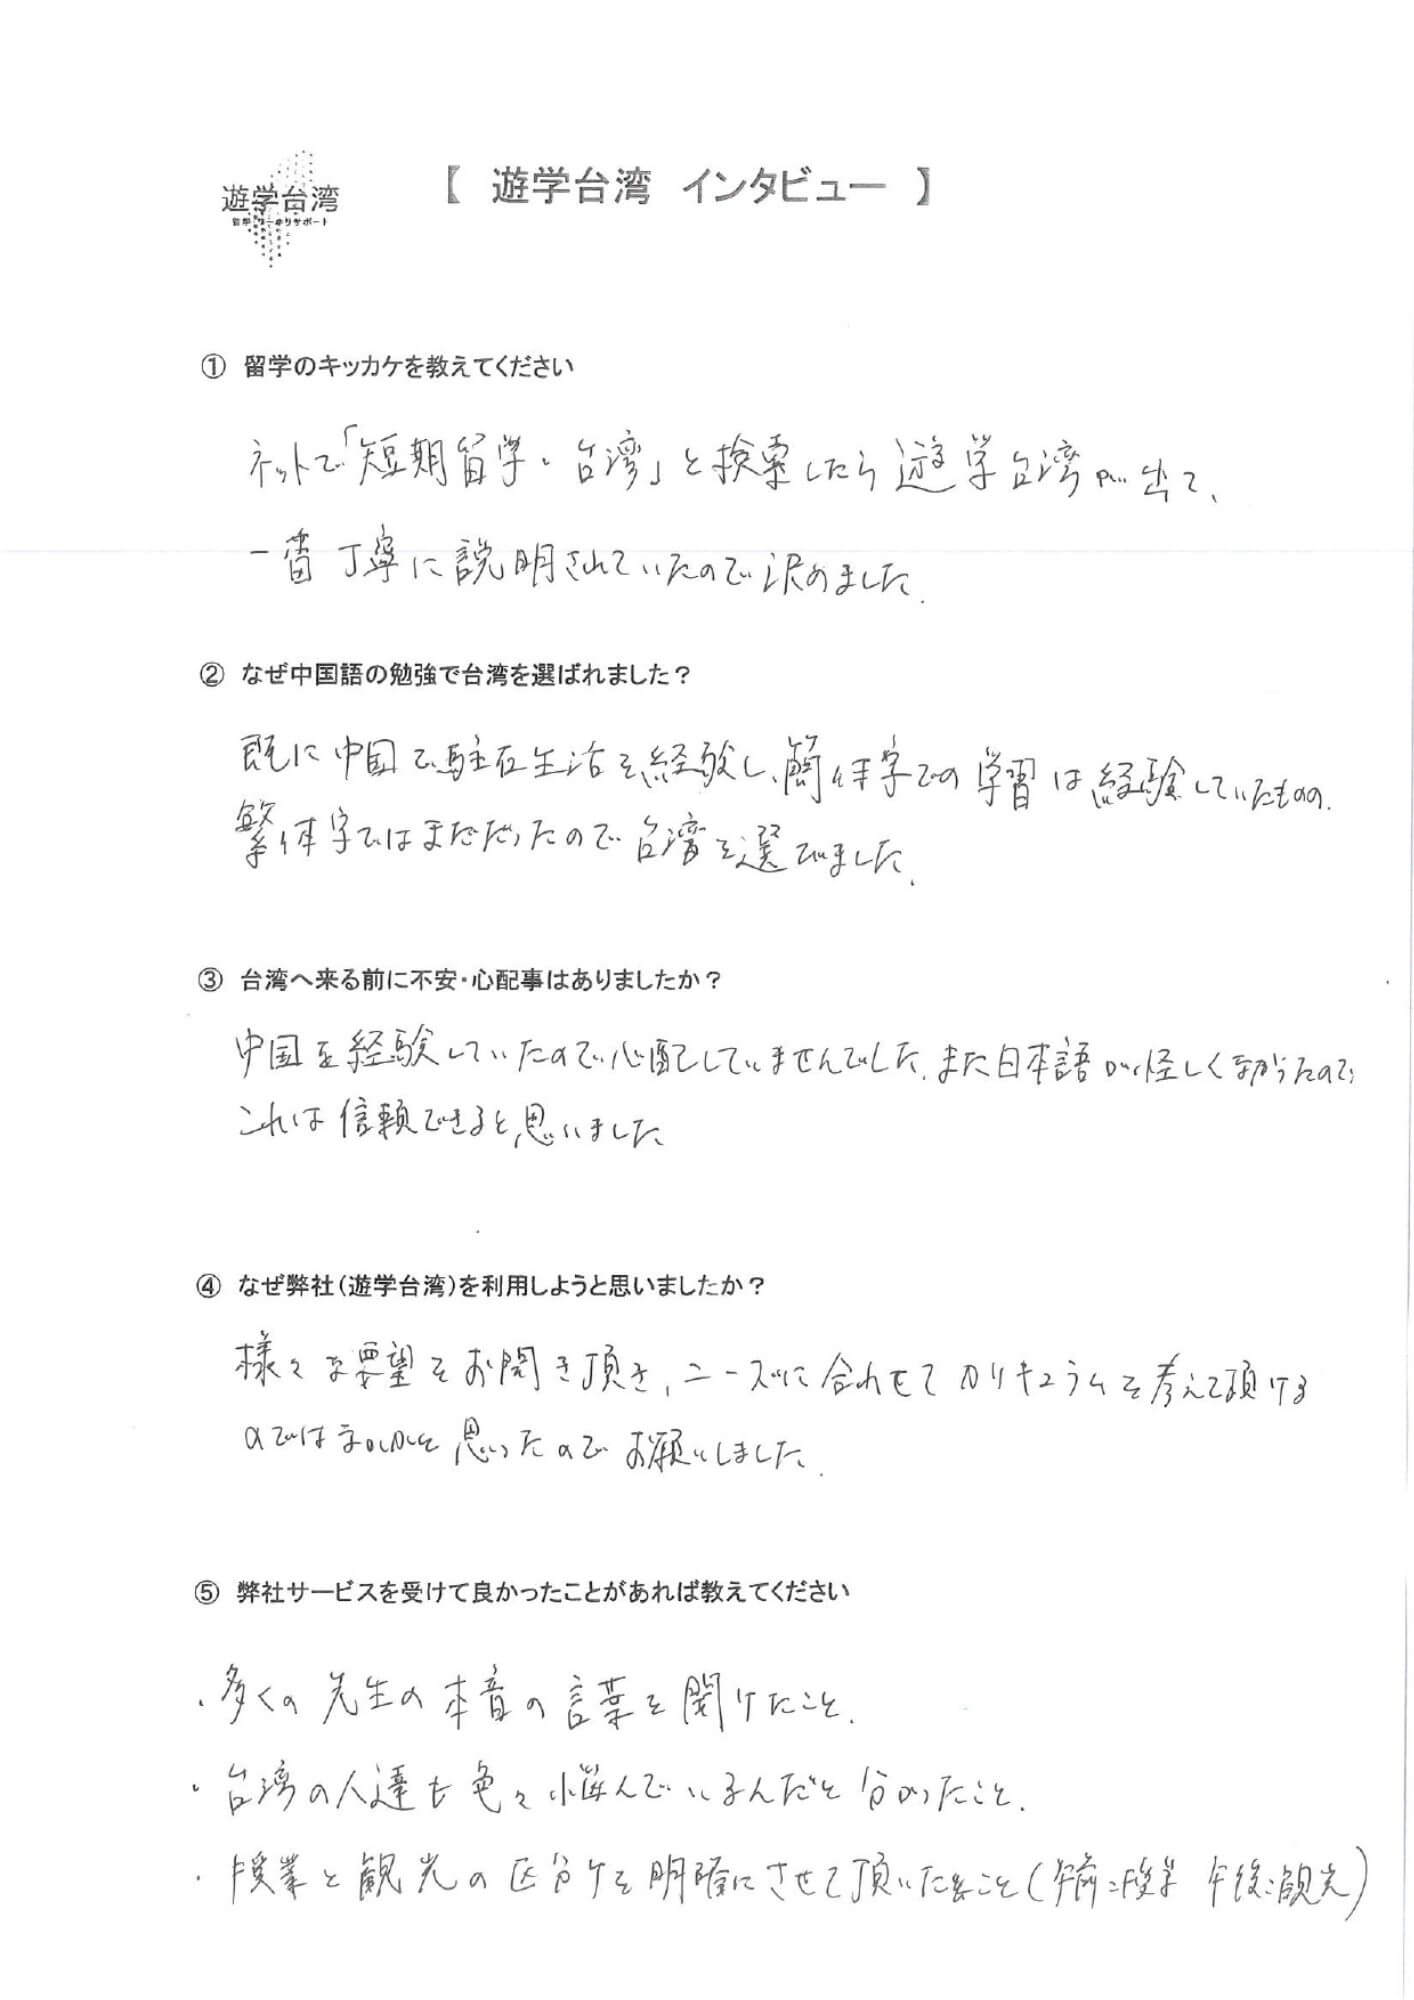 遊学台湾
留学・ワーホリサポート
【 遊学台湾 インタビュー 】
① 留学のキッカケを教えてください
ネットで「短期留学・台湾」と検索したら遊学台湾が出て、
一番丁寧に説明されていたので決めました.
② なぜ中国語の勉強で台湾を選ばれました？
既に中国で駐在生活を経験し、簡体字での学習は経験していたものの.
繁体字ではまだだったので台湾を選びました.
③ 台湾へ来る前に不安・心配事はありましたか？
中国を経験していたので心配していませんでした.また日本語が怪しくなかったので
これは信頼できると思いました
④ なぜ弊社(遊学台湾)を利用しようと思いましたか？
様々な要望をお聞き頂き,ニーズに合わせてカリキュラムを考えて頂ける
のではないかと思ったのでお願いしました.
⑤ 弊社サービスを受けて良かったことがあれば教えてください
・多くの先生の本音の言葉を聞けたこと.
・台湾の人達も色々悩んでいるんだと分かったこと.
・授業と観光の区分ケを明確にさせて頂いたこと(午前:授業 午後:観光)